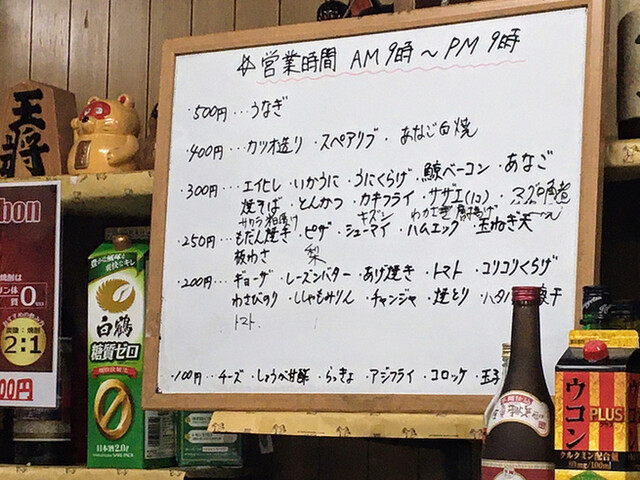 営業時間 AM9時～PM9時
・500円…うなぎ
・400円…カツオ造り・スペアリブ・あなご白焼
・300円…エイヒレ・いかうに・うにくらげ・鯨ベーコン・あなご
焼そば・とんかつ・カキフライ・サザエ(1コ)
・250円…もだん焼き・ピザ・シューマイ・ハムエッグ・玉ねぎ天
板わさ 梨
・200円…ギョーザ・レーズンバター・あげ焼き・トマト・コリコリくらげ
わさびのり・ししゃもみりん・チャンジャ・焼とり・ハタハ
トマト
・100円…チーズ・しょうが甘酢・らっきょ・アジフライ・コロッケ・玉子
王将
bon
0
2:1
00円
豊かな風味
爽快なキレ
白鶴
糖質ゼロ
0
日本酒2.0ℓ
ウコン
PLUS
クルクミン配合量
30mg/100ml